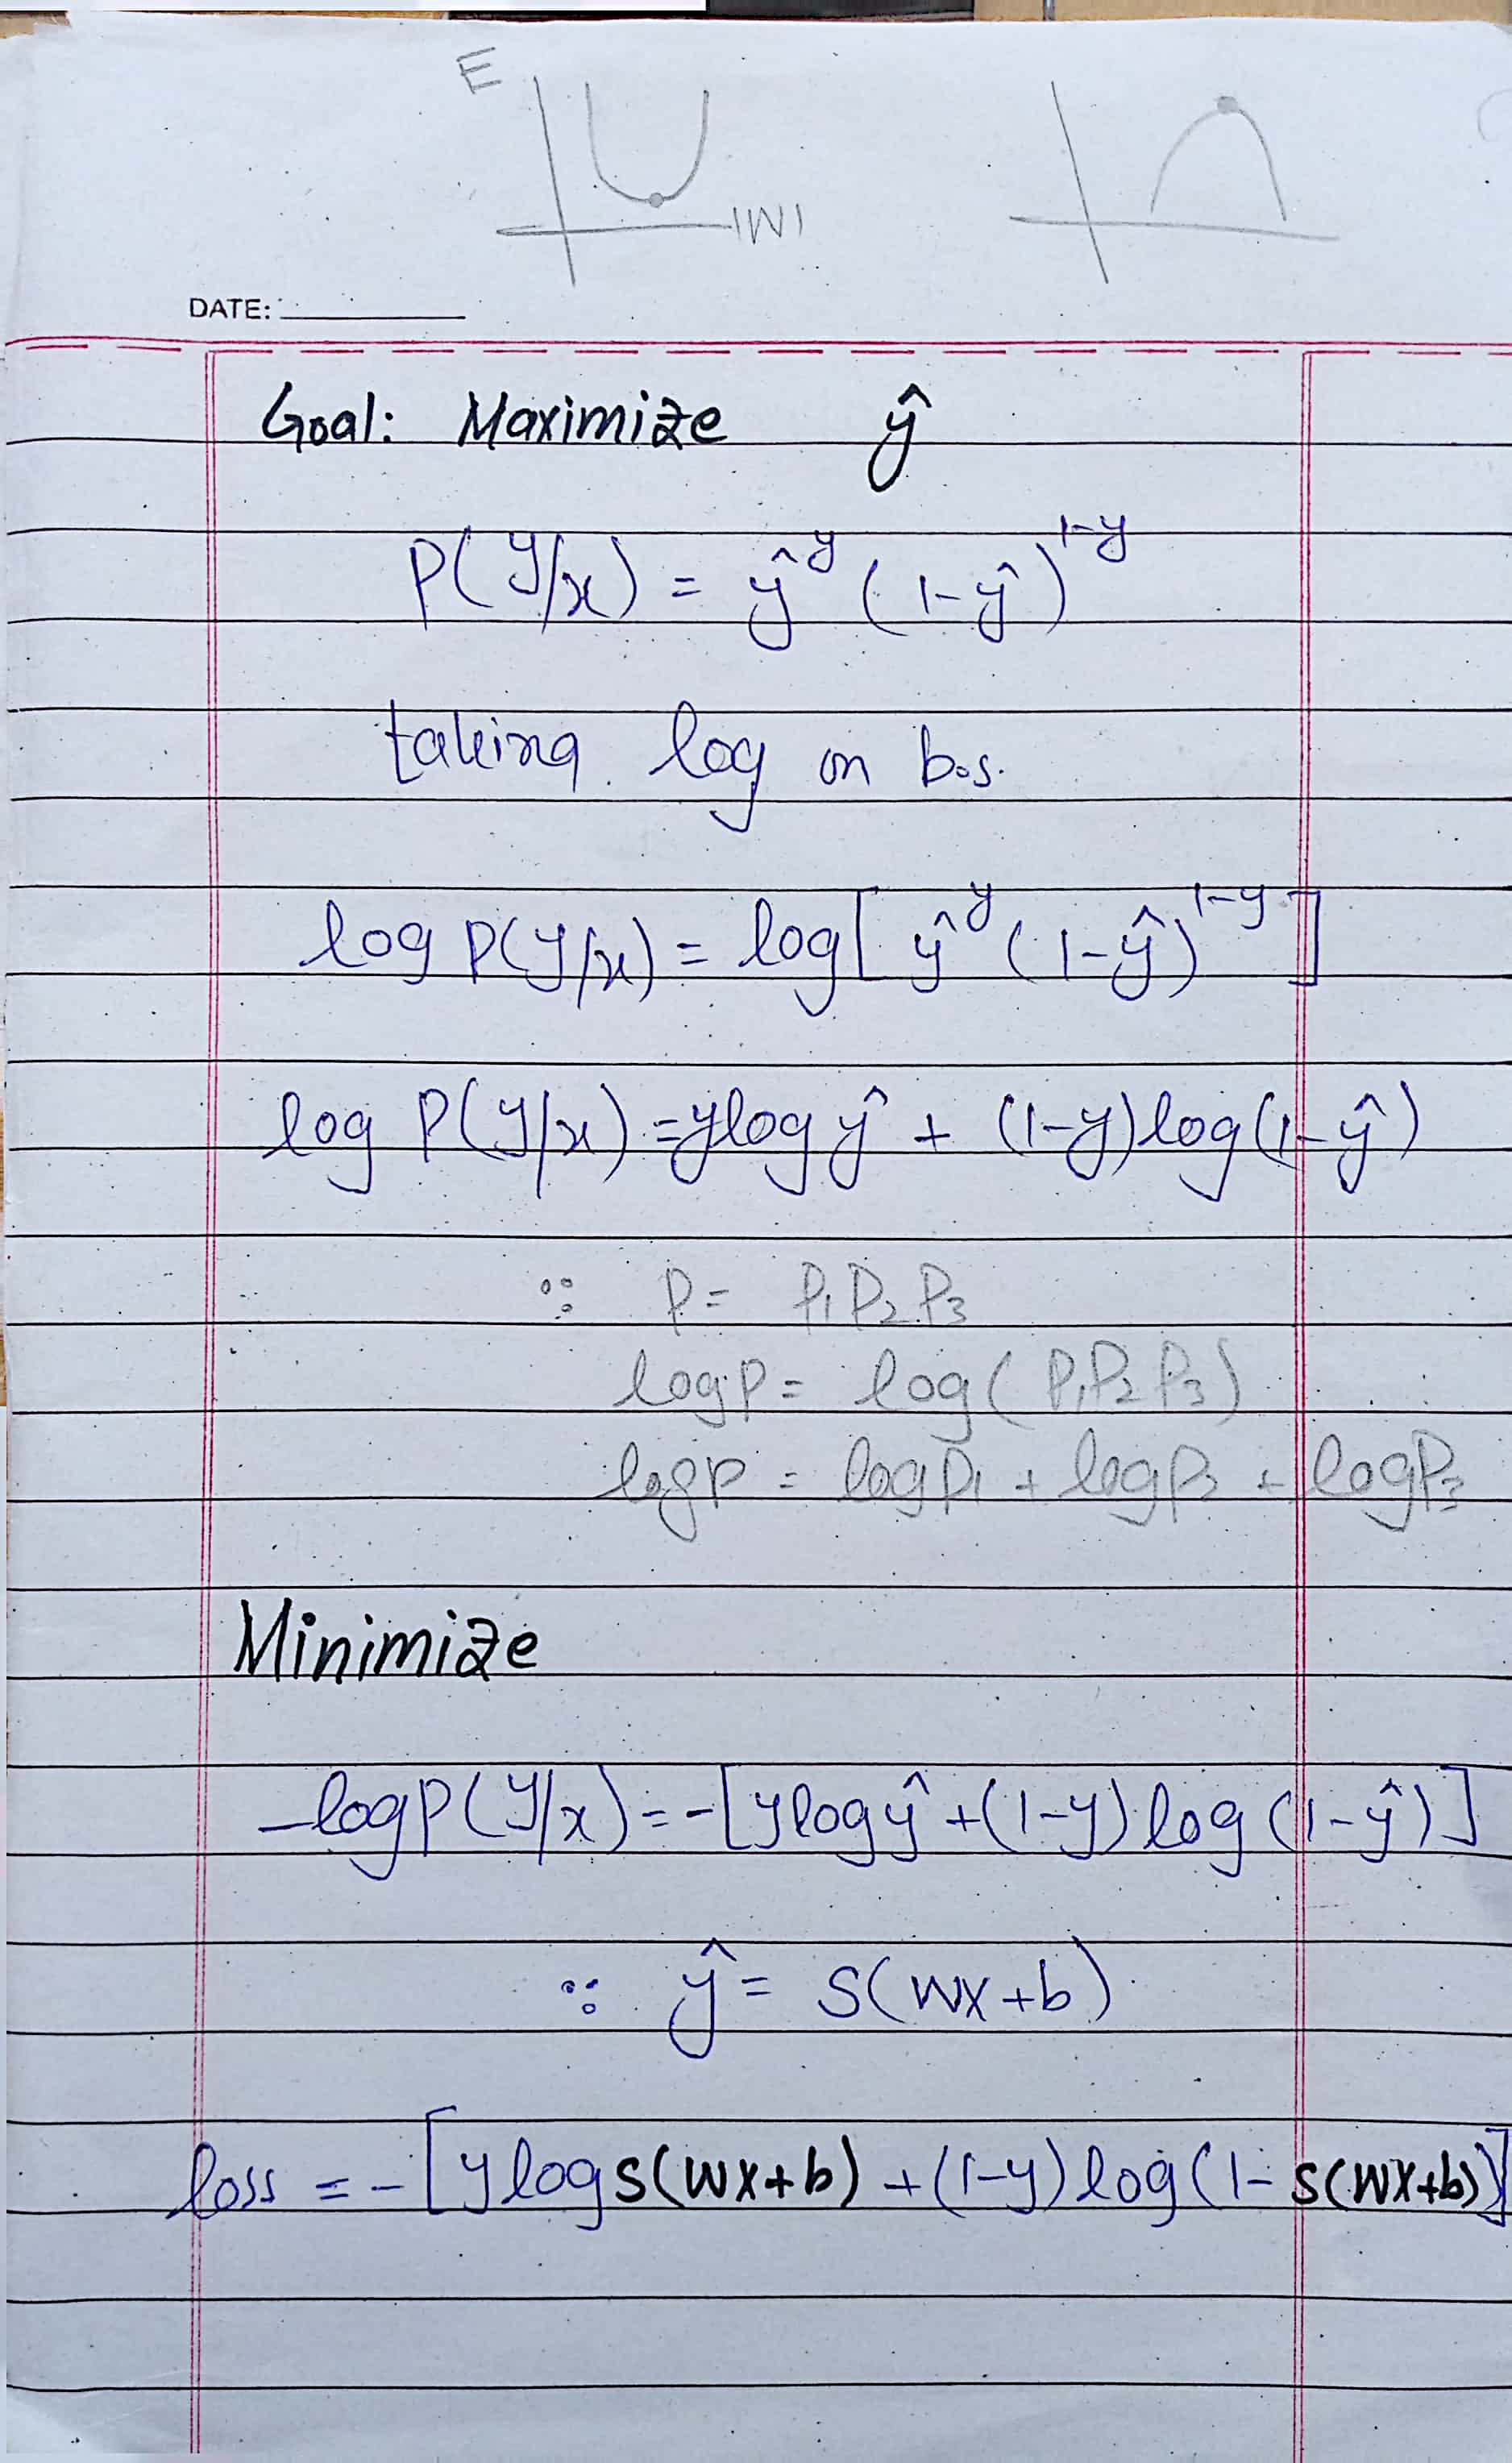 E
|W|
DATE:
Goal: Maximize ŷ
P(y/x) = ŷ^y (1-ŷ)^1-y
taking log on b.s.
log P(y/x) = log[ŷ^y (1-ŷ)^1-y]
log P(y/x) = ylogŷ + (1-y)log(1-ŷ)
∵ P = P₁P₂P₃
logP = log(P₁P₂P₃)
logP = logP₁ + logP₂ + logP₃
Minimize
-logP(y/x) = -[ylogŷ + (1-y)log(1-ŷ)]
∵ ŷ = S(wx+b)
loss = -[ylogs(wx+b) + (1-y)log(1-s(wx+b))]